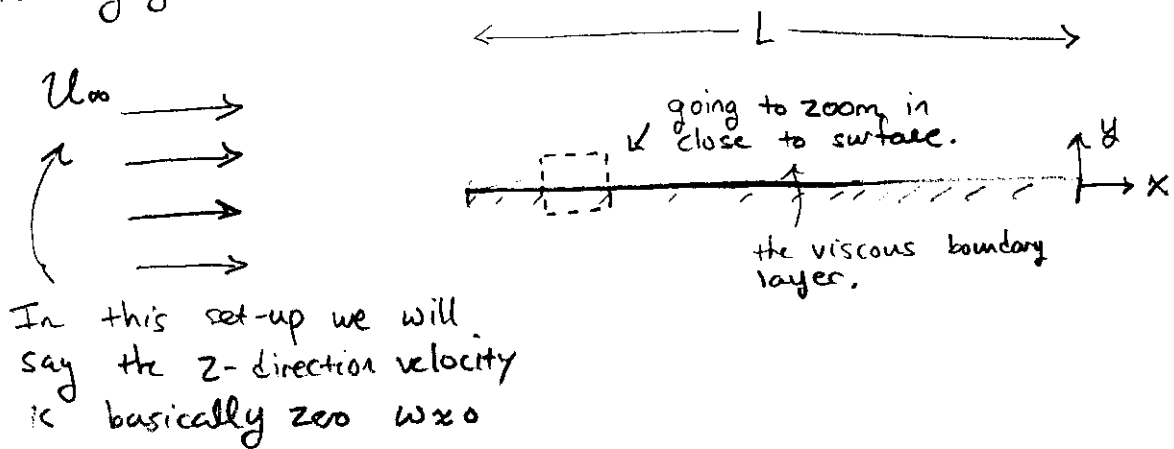 L
U∞
going to zoom in
close to surface.
y
x
the viscous boundary
layer.
In this set-up we will
say the z-direction velocity
is basically zero w≈0